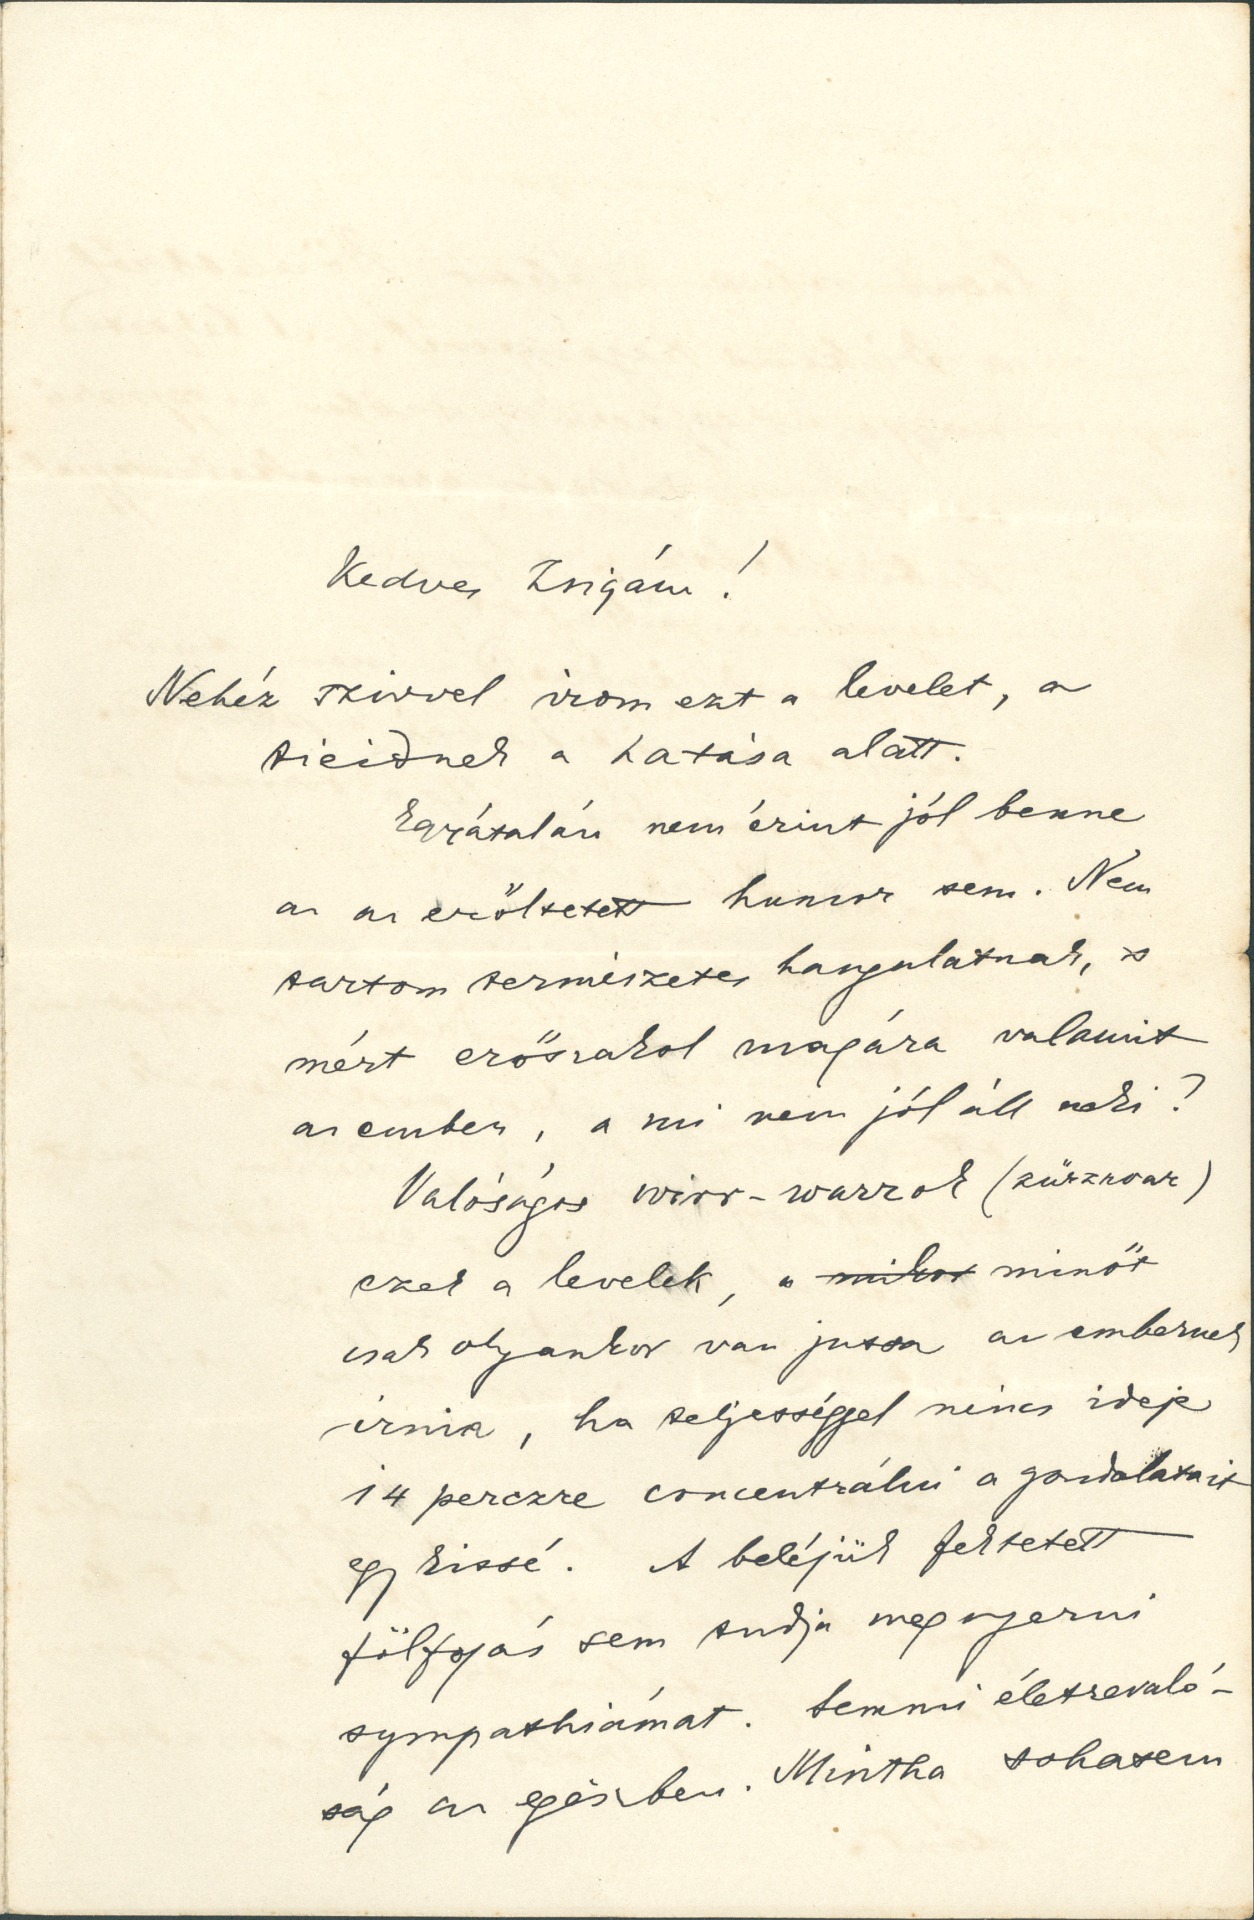 Kedves Zsigám!
Nehéz szivvel irom ezt a levelet, a
tieidnek a hatása alatt.
Egyátalán nem érint jól benne
az az erőltetett humor sem. Nem
tartom természetes hangulatnak, s
mért erőszakol magára valamit
az ember, a mi nem jól áll neki?
Valóságos wirr-warrok (zürzwar)
ezek a levelek, a mikor minőt
csak olyankor van jussa az embernek
irnia, ha teljességgel nincs ideje
14 perczre concentrálni a gondolatait
egy kissé. A beléjük fektetett
fölfogás sem tudja megnyerni
sympathiámat. Semmi életrevaló-
ság az egészben. Mintha sohasem